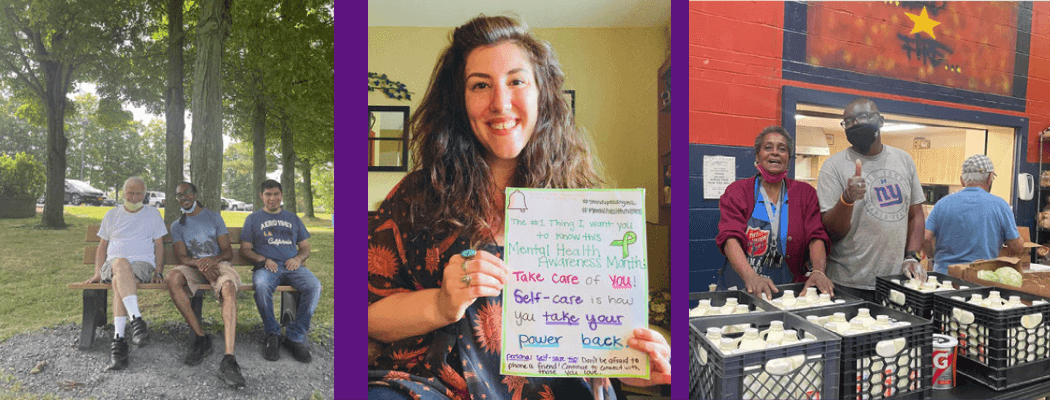 California
AERO
CALIFORNIA
The #1 Thing I want you
to know this
Mental Health
Awareness Month:
Take care of you!
Self-care is how
you take your
power back.
personal self-care tip: Don't be afraid to
phone a friend! Continue to connect with
those you love.
NY
G